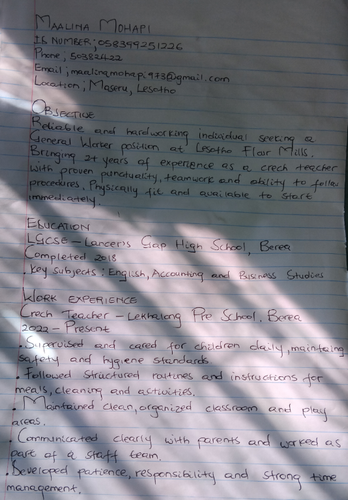 MAALINA MOHAPI
ID NUMBER; 058399251226
Phone; 50382422
Email; maalinamohapi973@gmail.com
Location; Maseru, Lesotho
OBJECTIVE
Reliable and hardworking individual seeking a
General Worker position at Lesotho Flour Mills.
Bringing 2+ years of experience as a crech teacher
with proven punctuality, teamwork and ability to follow
procedures. Physically fit and available to start
immediately.
EDUCATION
LGCSE - Lancers Gap High School, Berea
Completed 2018
. Key Subjects: English, Accounting and Business Studies
WORK EXPERIENCE
Crech Teacher - Lekhalong Pre School, Berea
2022 - Present
. Supervised and cared for children daily, maintaing
safety and hygiene standards
. Followed structured routines and instructions for
meals, cleaning and activities.
. Maintained clean, organized classroom and play
areas.
. Communicated clearly with parents and worked as
part of a staff team.
. Developed patience, responsibility and strong time
management.